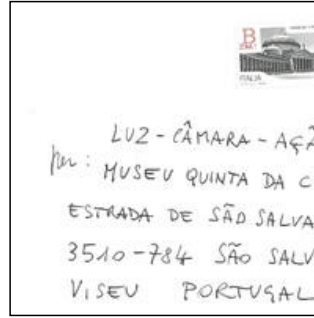 B
ITALIA
LUZ - CÂMARA - AÇÃ
per: MUSEU QUINTA DA C
ESTRADA DE SÃO SALVA
3510-784 SÃO SALV
VISEU PORTUGAL